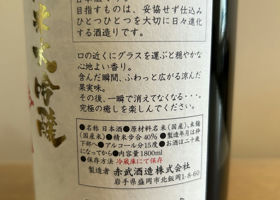 純米大吟醸
目指すものは、妥協せず仕込み
ひとつひとつを大切に日々進化
する酒造りです。
口の近くにグラスを運ぶと穏やかな
心地よい香り。
含んだ瞬間、ふわっと広がる涼んだ
果実味。
その後、一瞬で消えてなくなる・・・
究極の癒しを楽しんでください。
●名称 日本酒●原材料名 米(国産)、米麹
(国産)●精米歩合 40% ●製造年月は枠
下部へ●アルコール分15度 ●お酒は二十歳
になってから●内容量1800ml
●保存方法 冷蔵庫にて保存
製造者 赤武酒造株式会社
岩手県盛岡市北飯岡1-8-60